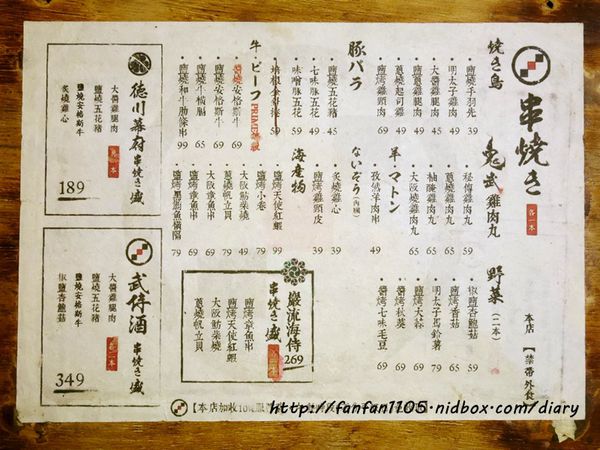 串燒き
各一本
本店【禁帶外食】
燒き鳥
鹽燒手羽先 39
明太子雞肉 49
大醬雞腿肉 45
鹽燒雞腿肉 45
蔥燒起司雞 49
鹽烤雞頸肉 69
豚バラ
鹽燒五花豬 45
七味豚五花 49
味噌豚五花 59
牛・ビーフ PRIME
醬燒安格斯牛 69
鹽燒安格斯牛 69
鹽燒牛橫膈 65
鹽燒和牛肋條串 99
鬼武雞肉丸
秘傳雞肉丸 59
蔥燒雞肉丸 65
柚醣雞肉丸 65
大阪燒雞肉丸 65
羊・マトン
孜然羊肉串 49
ないぞう(內臟)
炙燒雞心 39
鹽烤雞頸皮 39
海產物
鹽烤天使紅蝦 99
鹽烤小卷 79
大阪魴柴燒 49
蔥燒帆立貝 79
大阪章魚串 79
鹽烤章魚串 69
鹽烤黑鮪魚橫膈 79
野菜(二本)
椒鹽杏鮑菇 59
鹽烤香菇 65
明太子馬鈴薯 59
鹽烤大蒜 69
醬烤秋葵 69
醬烤七味毛豆 69
德川幕府串燒き盛
大醬雞腿肉
鹽燒五花豬
鹽燒安格斯牛
炙燒雞心
189
武侍酒串燒き盛
大醬雞腿肉
鹽燒五花豬
鹽燒安格斯牛
椒鹽杏鮑菇
349
巖流海侍串燒き盛
269
鹽烤章魚串
鹽烤天使紅蝦
大阪魴柴燒
蔥燒帆立貝
【本店加收10%服
http://fanfan1105.nidbox.com/diary